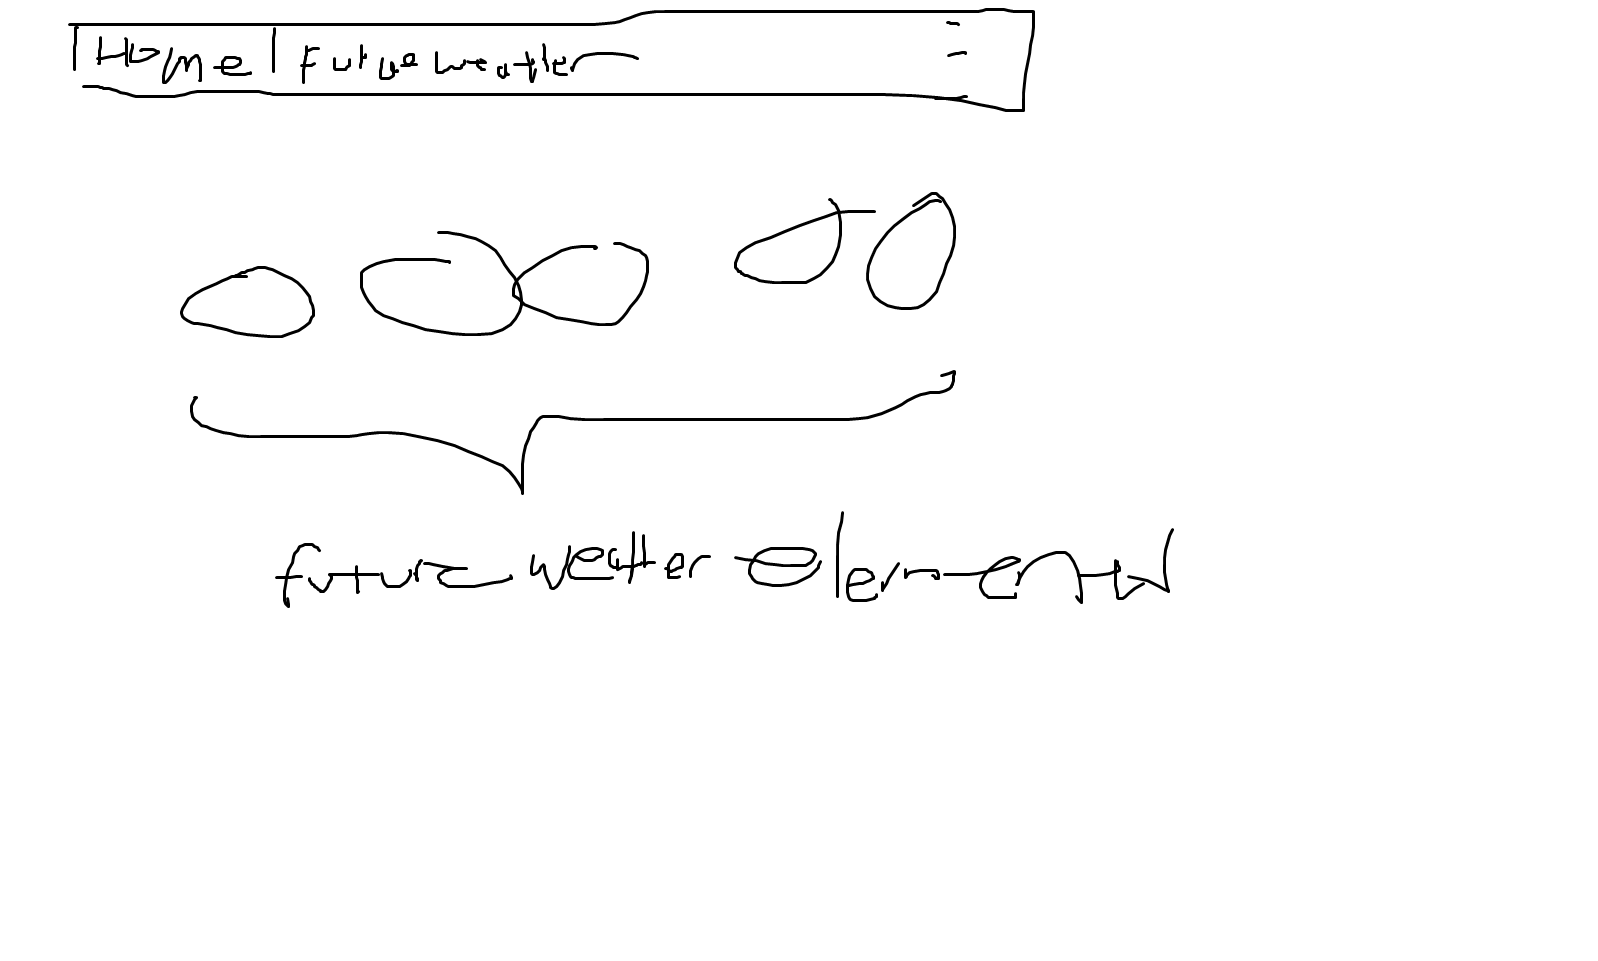 Home | Future weather
future weather elements